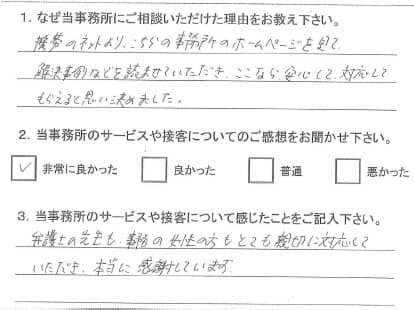 1. なぜ当事務所にご相談いただけた理由をお教え下さい。
携帯のネットより、こちらの事務所のホームページを見て、
解決事例などを読ませていただき、ここなら安心して対応して
もらえると思い決めました。
2. 当事務所のサービスや接客についてのご感想をお聞かせ下さい。
✓ 非常に良かった □ 良かった □ 普通 □ 悪かった
3. 当事務所のサービスや接客について感じたことをご記入下さい。
弁護士の先生も、事務の女性の方もとても親切に対応して
いただき、本当に感謝しています。